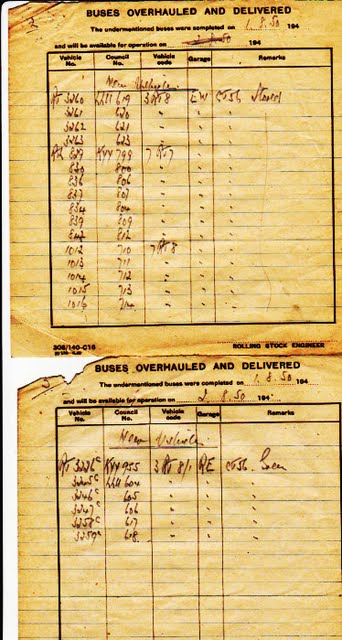 3
BUSES OVERHAULED AND DELIVERED
The undermentioned buses were completed on 1.8.50 194
and will be available for operation on 2.8.50 194
Vehicle No. Council No. Vehicle code Garage Remarks
New Vehicles
RT 3260 LLU 619 3 RT 8 EW CT56 Stored
3261 620 " " "
3262 621 " " "
3263 623 " " "
RT 829 KYY 799 7 RT 7 " "
830 800 " " "
836 806 " " "
837 807 " " "
834 804 " " "
839 809 " " "
842 812 " " "
1012 710 7 RT 8 " "
1013 711 " " "
1014 712 " " "
1015 713 " " "
1016 714 " " "
308/140-C16 ROLLING STOCK ENGINEER
BUSES OVERHAULED AND DELIVERED
The undermentioned buses were completed on 1.8.50
and will be available for operation on 2.8.50 194
Vehicle No. Council No. Vehicle code Garage Remarks
New Vehicles
RT 3226c KYY 955 3 RT 8/1 RE CT56. Green
3245c LLU 604 " " "
3246c 605 " " "
3247c 606 " " "
3258c 617 " " "
3259c 618 " " "